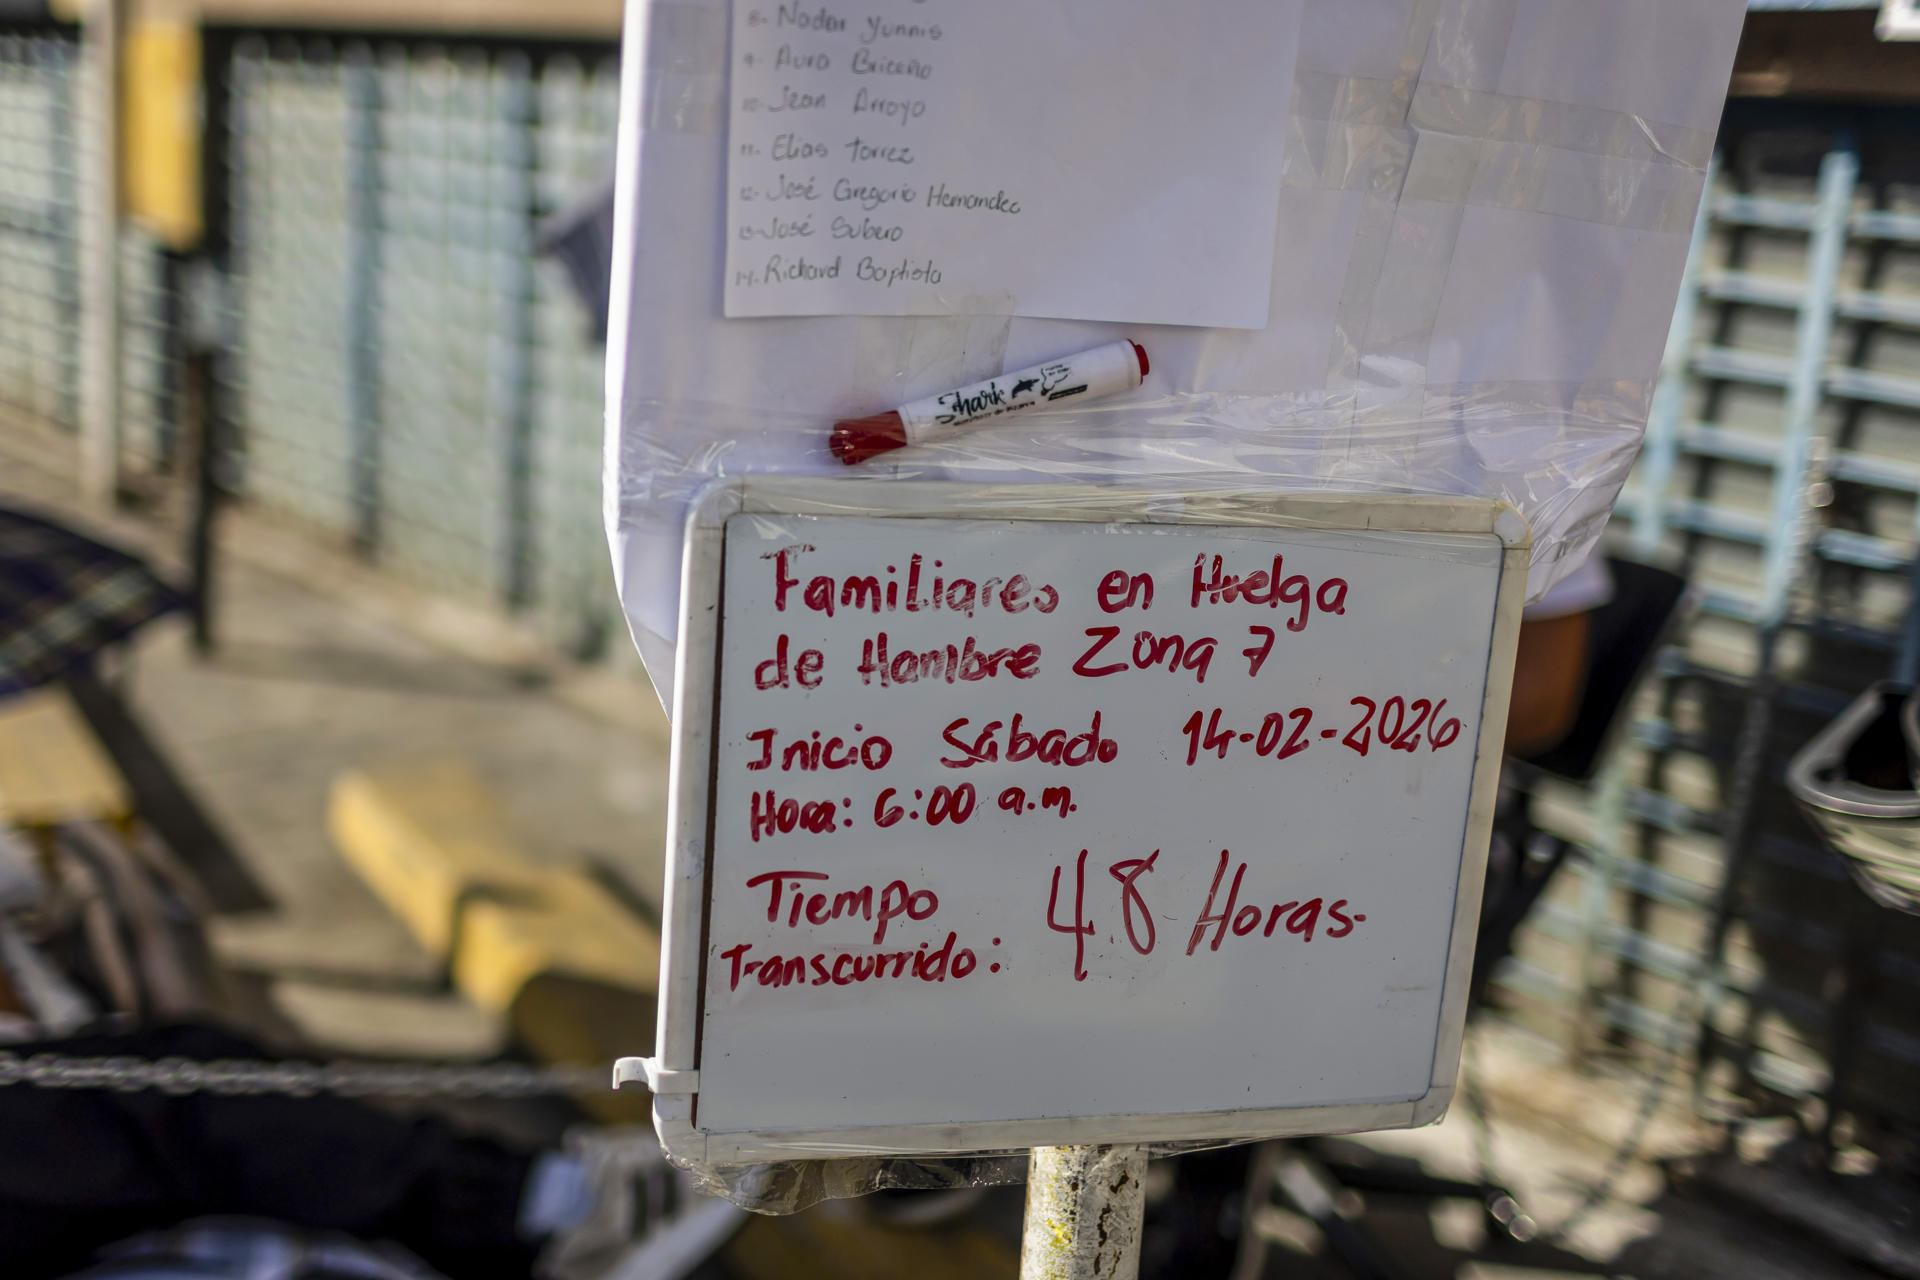 8- Nadar Yunnis
9- Aura Briceño
10- Jean Arroyo
11- Elias Torrez
12- José Gregorio Hernandec
13- José Subero
14- Richard Baptista
Shark
Familiares en Huelga
de Hambre Zona 7
Inicio Sábado 14-02-2026
Hora: 6:00 a.m.
Tiempo 48 Horas-
Transcurrido: